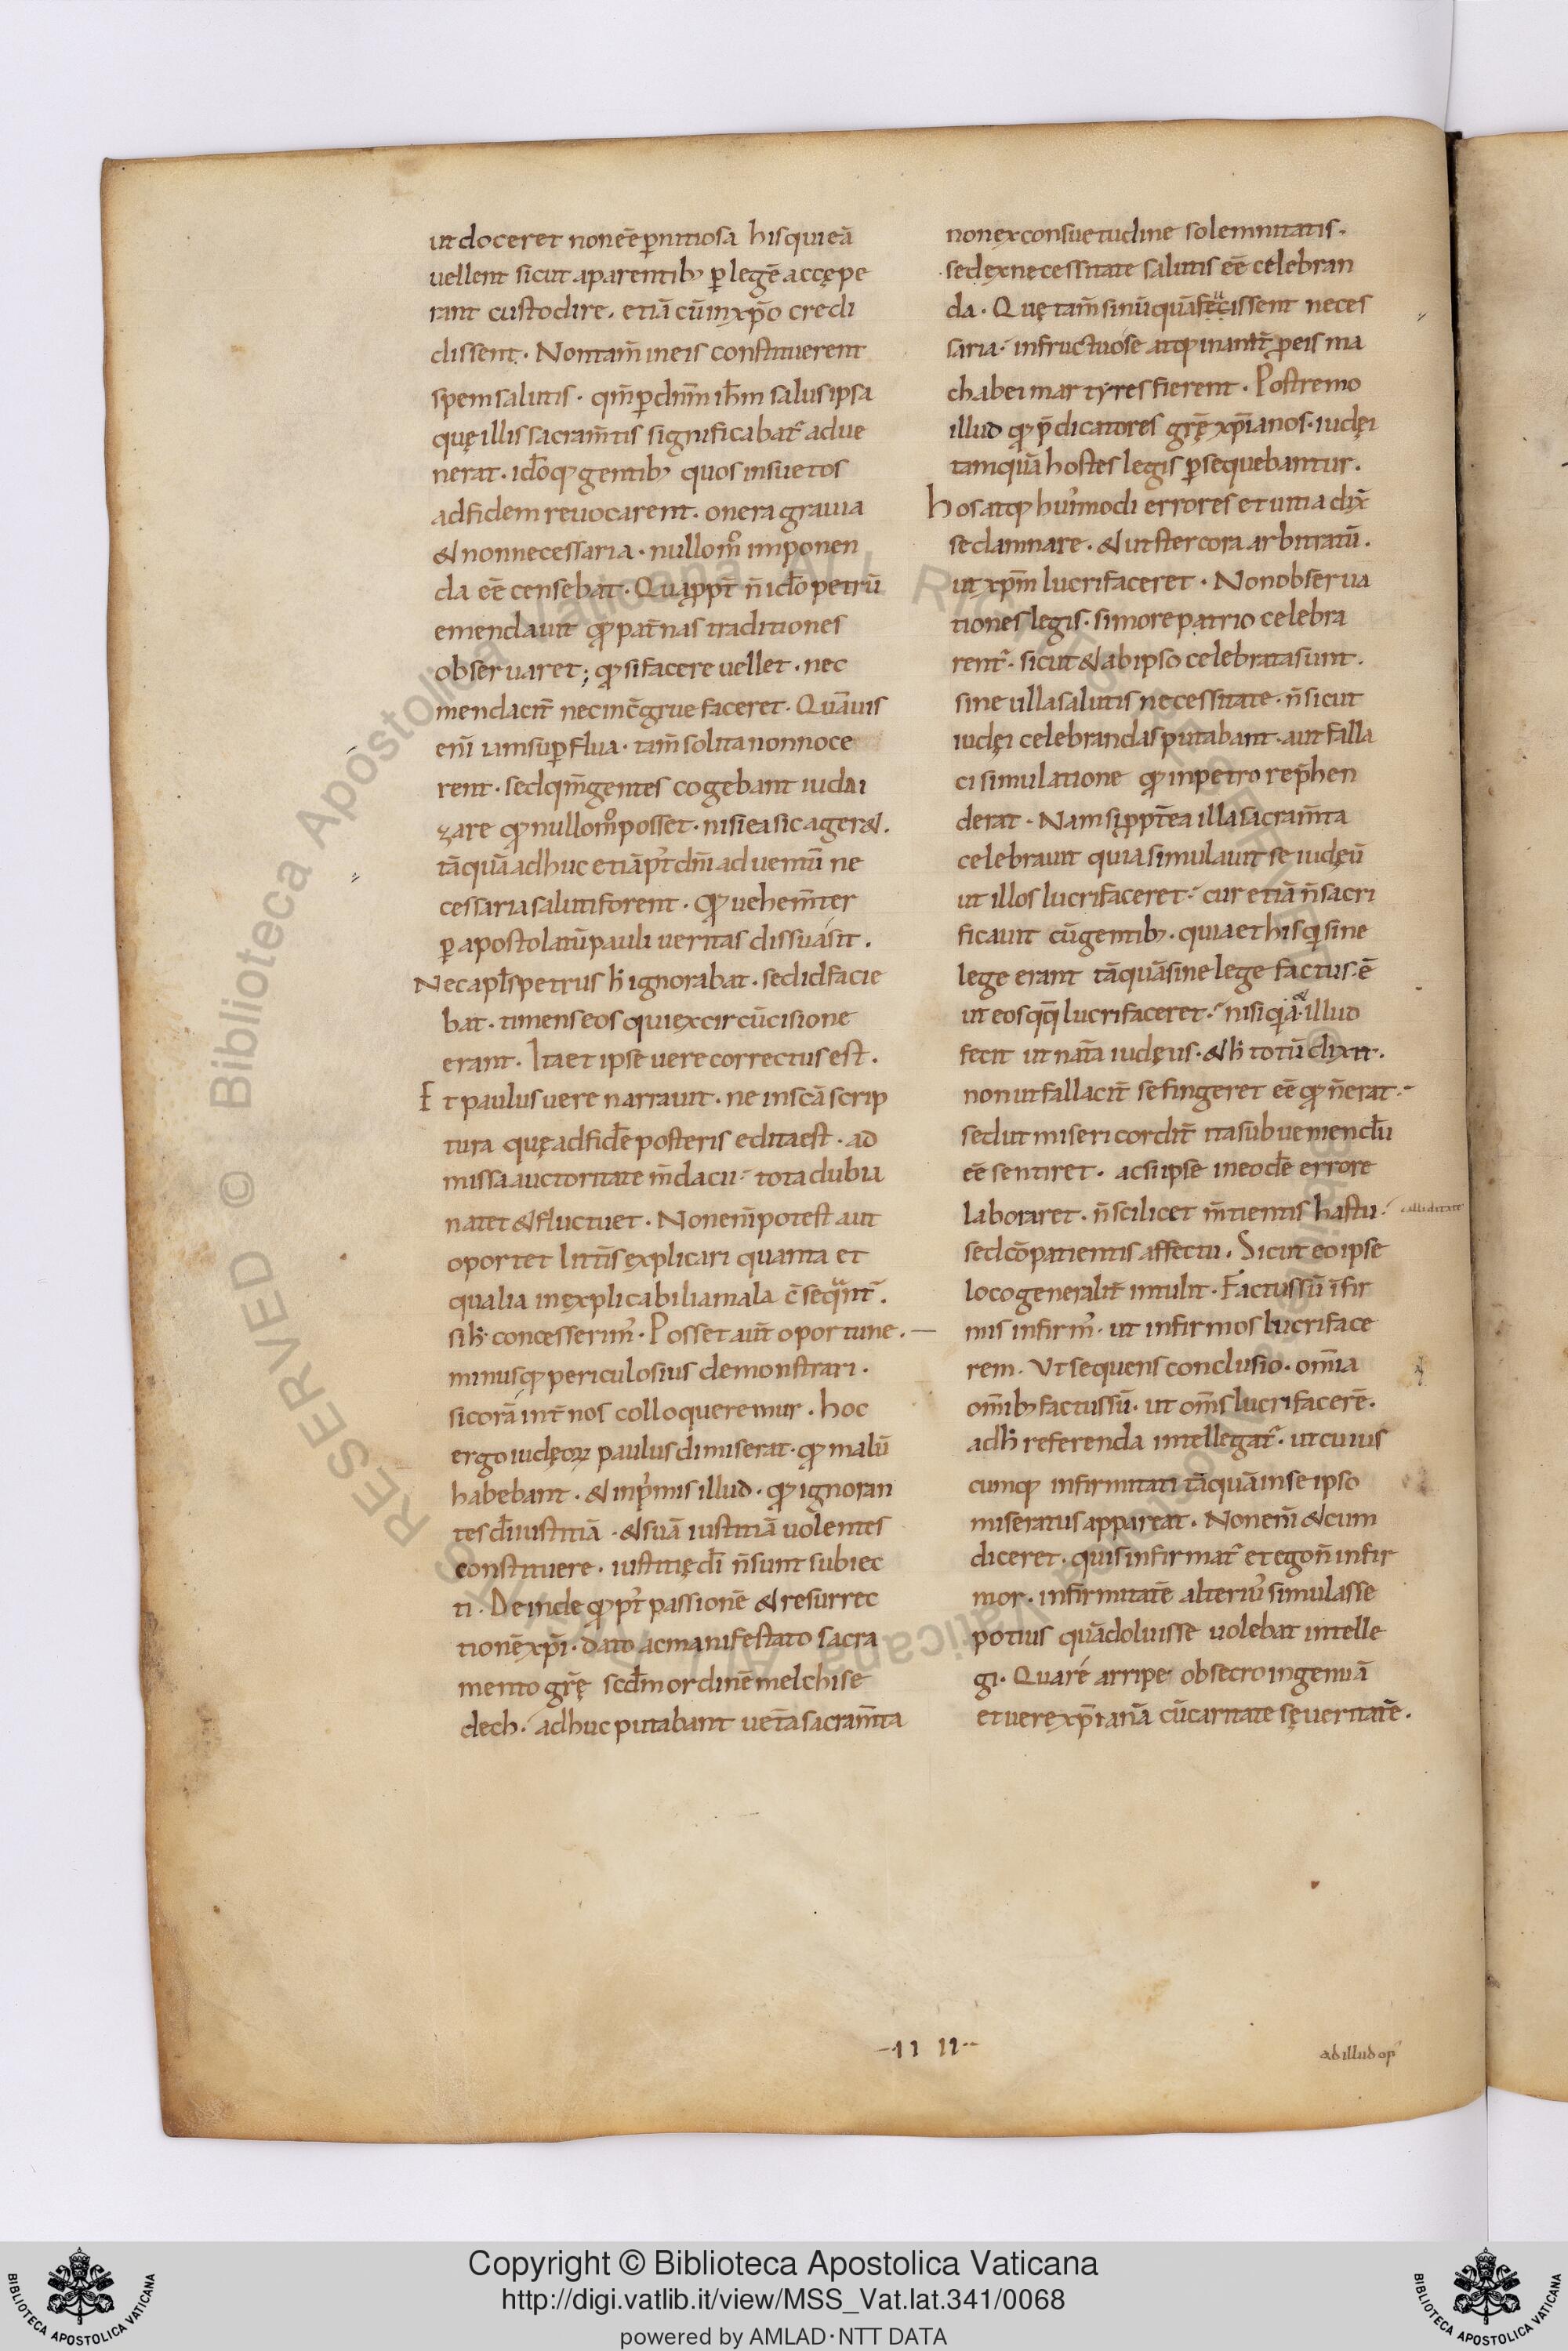 ut doceret non eē ꝑnitiosa his qui eā
uellent sicut a parentib; ꝑ legē accępe
rant custodire. etiā cū in xp̄o credi
dissent. Non tam̄ in eis constituerent
spem salutis. qm̄ ꝑ dnm̄ ih̄m salus ipsa
quę illis sacram̄tis significabat᷑ adue
nerat. id̄oq; gentib; quos insuetos
ad fidem reuocarent. onera grauia
& non necessaria. nullom̊ imponen
da eē censebat. Quapp̄t n̄ id̄o petrū
emendauit qđ pat̄nas traditiones
obseruaret; qđ si facere uellet. nec
mendacit̄ nec inc̄grue faceret. Quāuis
eni̅ iam suꝑflua. tam̄ solita non noce
rent. sed qm̄ gentes cogebant iudai
zare qđ nullom̊ posset. nisi ea sic ager&.
tāquā adhuc etiā pt᷑ dn̄i aduentū ne
cessaria saluti forent. Qđ uehem̄ter
ꝑ apostolatū pauli ueritas dissuasit.
Nec apl̄s petrus h̄ ignorabat. sed id facie
bat. timens eos qui ex circūcisione
erant. Ita et ipse uere correctus est.
Et paulus uere narrauit. ne in scā scrip
tura quę ad fidē posteris edita est. ad
missa auctoritate m̄dacii tota dubia
natet & fluctuet. Non eni̅ potest aut
oportet litt̄is explicari quanta et
qualia inexplicabilia mala c̄sequant᷑.
si h̄ concesserim᷒. Posset aut̄ oportune.
minusq; periculosius demonstrari.
si corā int̄ nos colloqueremur. hoc
ergo iudęoꝝ paulus dimiserat. qđ malū
habebant. & inp᷒mis illud. qđ ignoran
tes dī iustitiā. & suā iustitiā uolentes
constituere. iustitię dī n̄ sunt subiec
ti. Deinde qđ pt᷑ passionē & resurrec
tionē xp̄i. dato ac manifestato sacra
mento gr̄ę scdm̄ ordinē melchise
dech. adhuc putabant uet̄a sacram̄ta
non ex consuetudine solemnitatis.
sed ex necessitate salutis eē celebran
da. Quę tam̄ si nūquā fecissent neces
saria. infructuose atq; inanit̄ ꝓ eis ma
chabei martyres fierent. Postremo
illud qđ p̄dicatores gr̄ę xp̄ianos. iudęi
tamquā hostes legis ꝑsequebantur.
Hos atq; hui᷒modi errores et uitia dix̄
se damnare. & ut stercora arbitratū.
ut xp̄m lucrifaceret. Non obserua
tiones legis. si more patrio celebra
rent᷑. sicut & ab ipso celebrata sunt.
sine ulla salutis necessitate. n̄ sicut
iudęi celebrandas putabant. aut falla
ci simulatione qđ in petro rep̄hen
derat. Nam si ppt̄ea illa sacram̄ta
celebrauit quia simulauit se iudęū
ut illos lucrifaceret. cur etiā n̄ sacri
ficauit cū gentib;. quia et his qi sine
lege erant tāquā sine lege factus ē
ut eos qq̄ lucrifaceret. nisi qia & illud
fecit ut nat̄a iudęus. & h̄ totū dixit.
non ut fallacit̄ se fingeret eē qđ n̄ erat
sed ut misericordit̄ ita subueniend̄u
eē sentiret. ac si ipse in eodē errore
laboraret. n̄ scilicet m̄tientis hastu. calliditate
sed cōpatientis affectu. Sicut eo ipse
loco generalit̄ intulit. Factus sū ifir
mis infirm᷒. ut infirmos lucriface
rem. Ut sequens conclusio. om̄ia
om̄ib; factus sū. ut om̄s lucrifacerē.
ad h̄ referenda intellegat᷑. ut cuius
cumq; infirmitati tāquā in se ipso
miseratus appareat. Non eni̅ & cum
diceret. quis infirmat᷑ et ego n̄ infir
mor. infirmitatē alteri᷒ simulasse
potius quā doluisse uolebat intelle
gi. Quare arripe obsecro ingenuā
et uere xp̄ianā cū caritate seueritatē.
11 11
ad illud op᷒
Copyright © Biblioteca Apostolica Vaticana
http://digi.vatlib.it/view/MSS_Vat.lat.341/0068
powered by AMLAD·NTT DATA
BIBLIOTECA APOSTOLICA VATICANA
BIBLIOTECA APOSTOLICA VATICANA